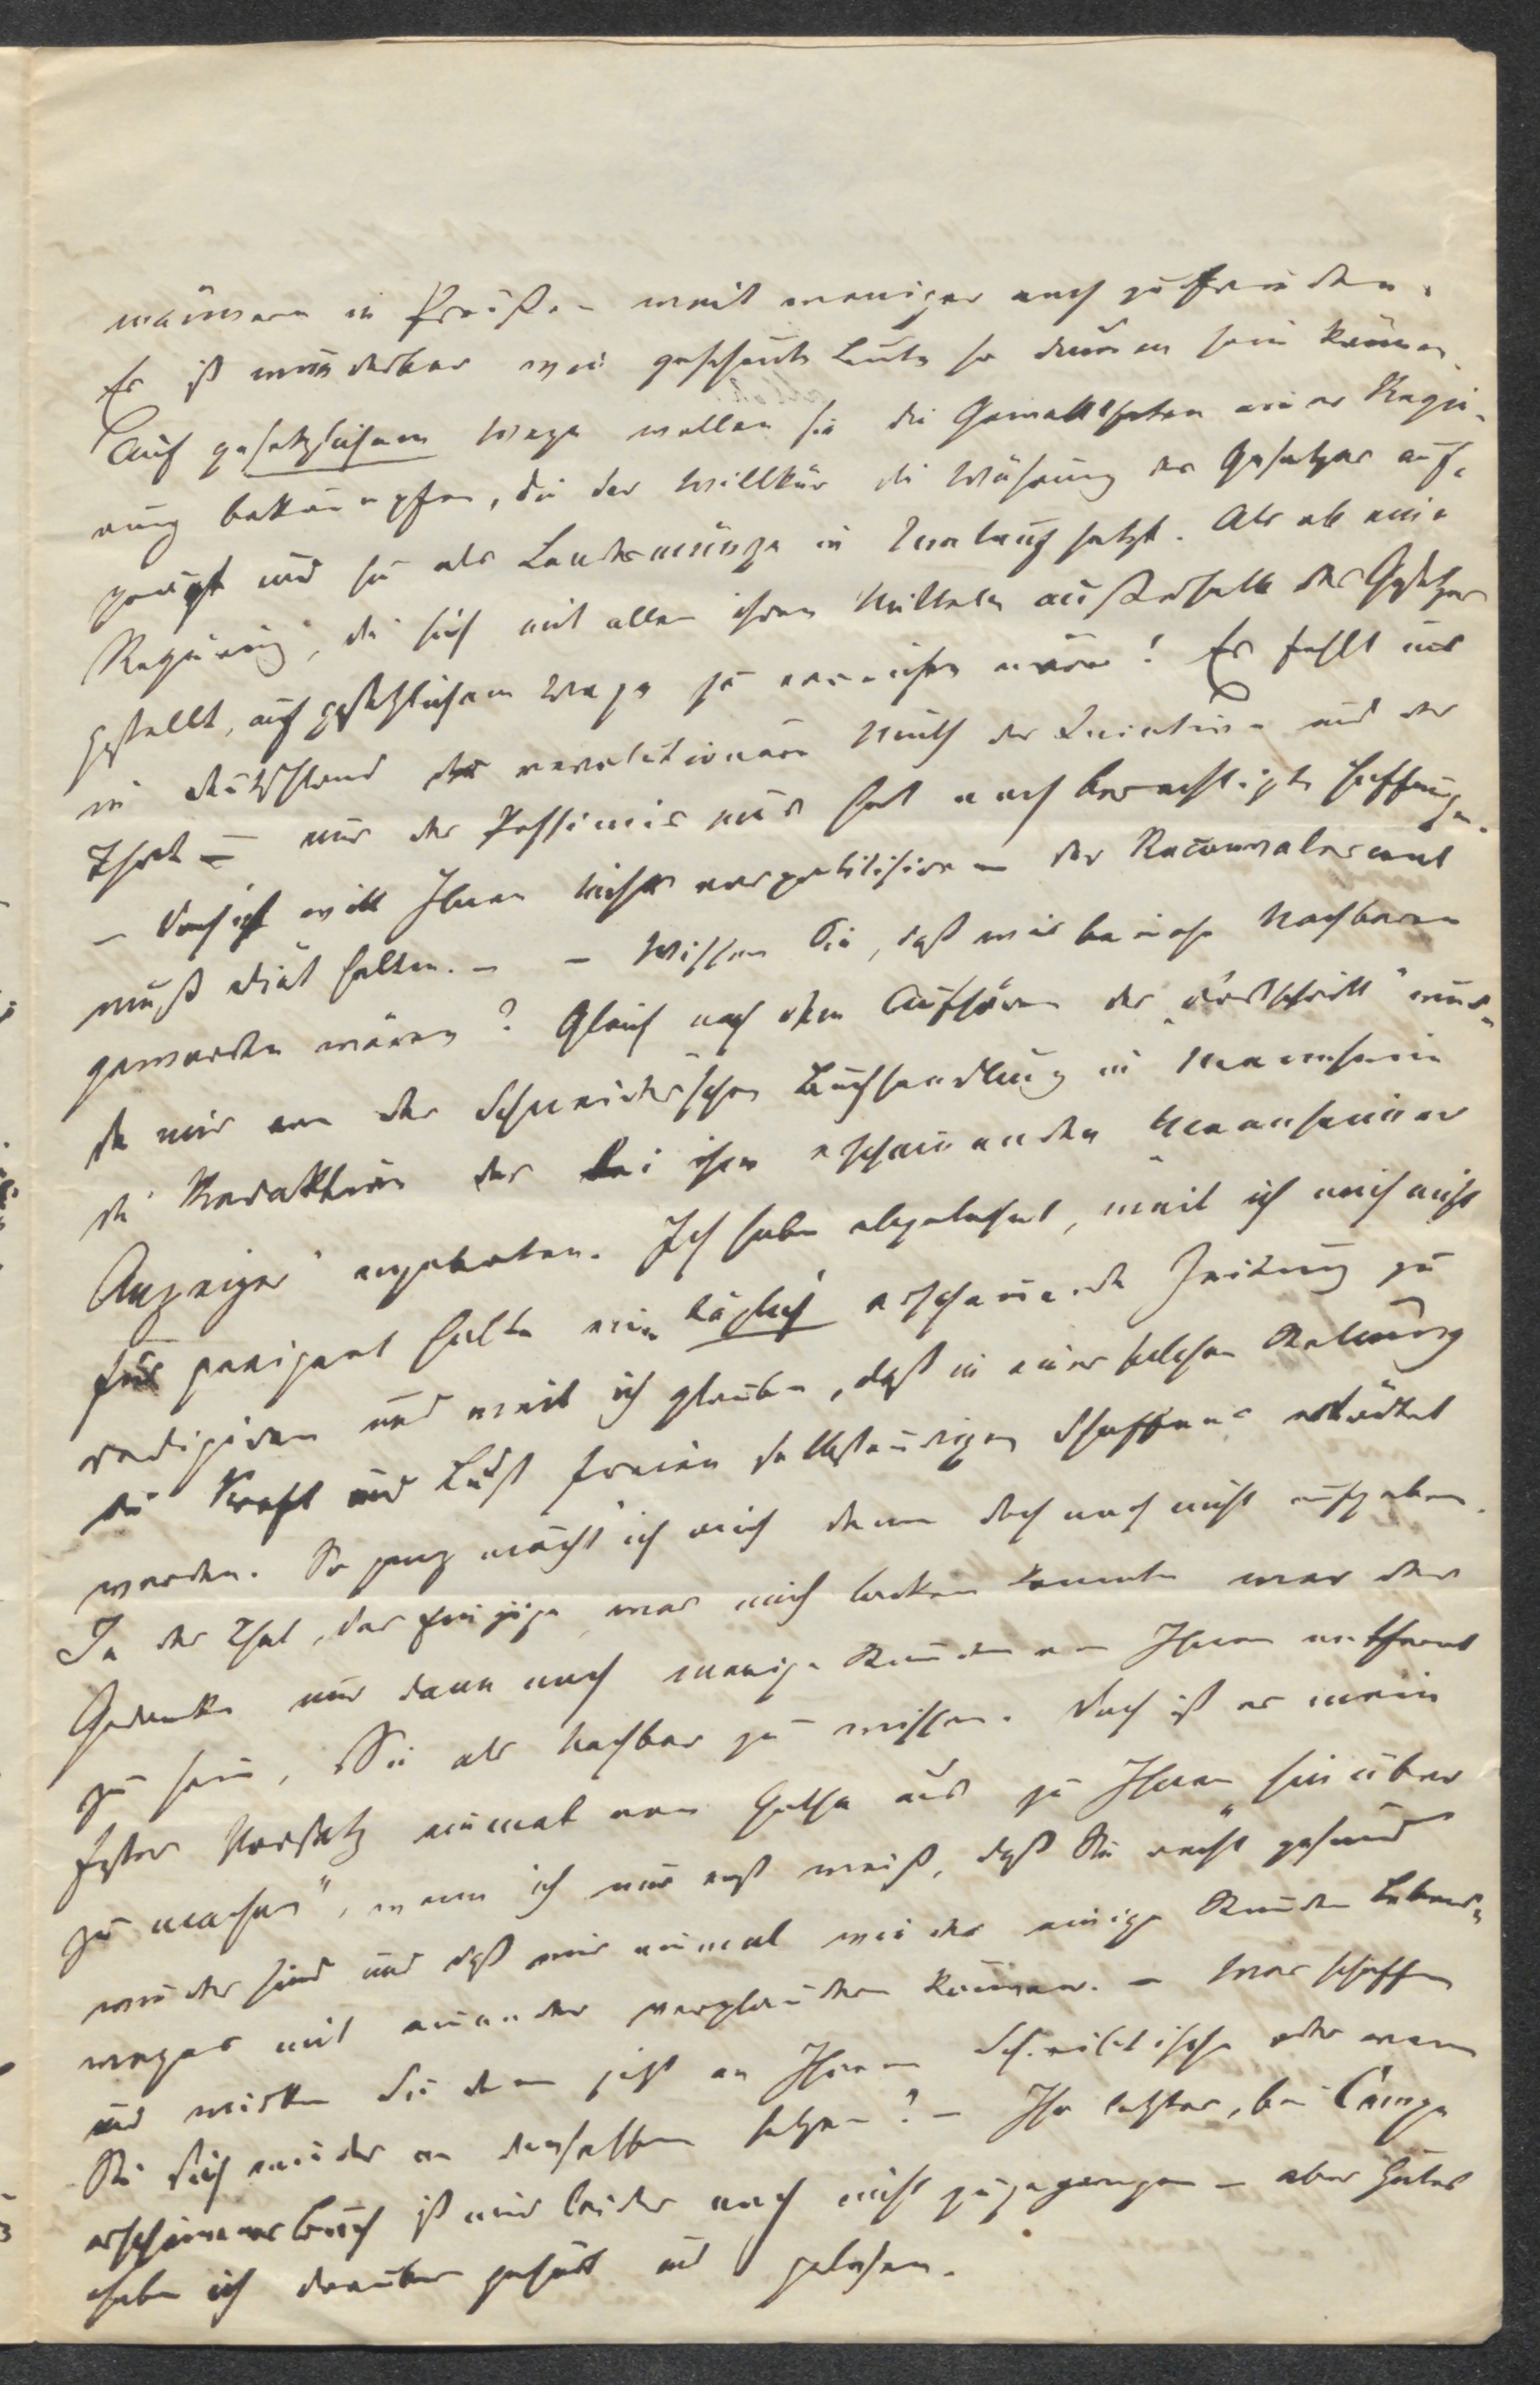 männern in Preußen weit weniger noch zufrieden.
Es ist wunderbar wie gescheute Leute so dumm sein können.
Auf gesetzlichem Wege wollen sie die Gewaltthaten einer Regie-
rung bekämpfen, die der Willkür die Währung des Gesetzes auf-
prägt und sie als Landesmünze in Umlauf setzt. Als ob eine
Regierung, die sich mit allen ihren Mitteln außerhalb des Gesetzes
gestellt, auf gesetzlichem Wege zu erreichen wäre! Es fehlt uns
in Deutschland der revolutionäre Muth der Initiative und der
That — nur der Pessimismus hat noch berechtigte Hoffnungen.
— Doch ich will Ihnen nichts vorpolitisiren — der Reconvalescent
muß Diät halten. — — Wissen Sie, daß wir beinahe Nachbaren
geworden wären? Gleich nach dem Aufhören des „Fortschritt“ wur-
de mir von der Schneider'schen Buchhandlung in Mannheim
die Redaktion des bei ihm erscheinenden „Mannheimer
Anzeiger“ angeboten. Ich habe abgelehnt, weil ich mich nicht
für geeigent halte eine täglich erscheinende Zeitung zu
redigiren und weil ich glaube, daß in einer solchen Stellung
die Kraft und Lust freien selbständigen Schaffens ertödtet
werden. So ganz möcht' ich mich denn doch noch nicht aufgeben.
In der That, das Einzige was mich locken konnte war der
Gedanke nur dann noch wenige Stunden von Ihnen entfernt
zu sein, Sie als Nachbar zu wissen. Doch ist es mein
fester Vorsatz einmal von Gotha aus zu Ihnen „hinüber
zu machen“, wenn ich nur erst weiß, daß Sie recht gesund
wieder sind und daß wir einmal wieder einige Stunden Lebens-
weges mit einander verplaudern können. — Was schaffen
und wirken Sie denn jetzt an Ihrem Schreibtische oder wann
Sie sich wieder an denselben setzen? — Ihr letztes, bei Campe
erschienenes Buch ist mir leider noch nicht zugegangen — aber Gutes
habe ich darüber gehört und gelesen.